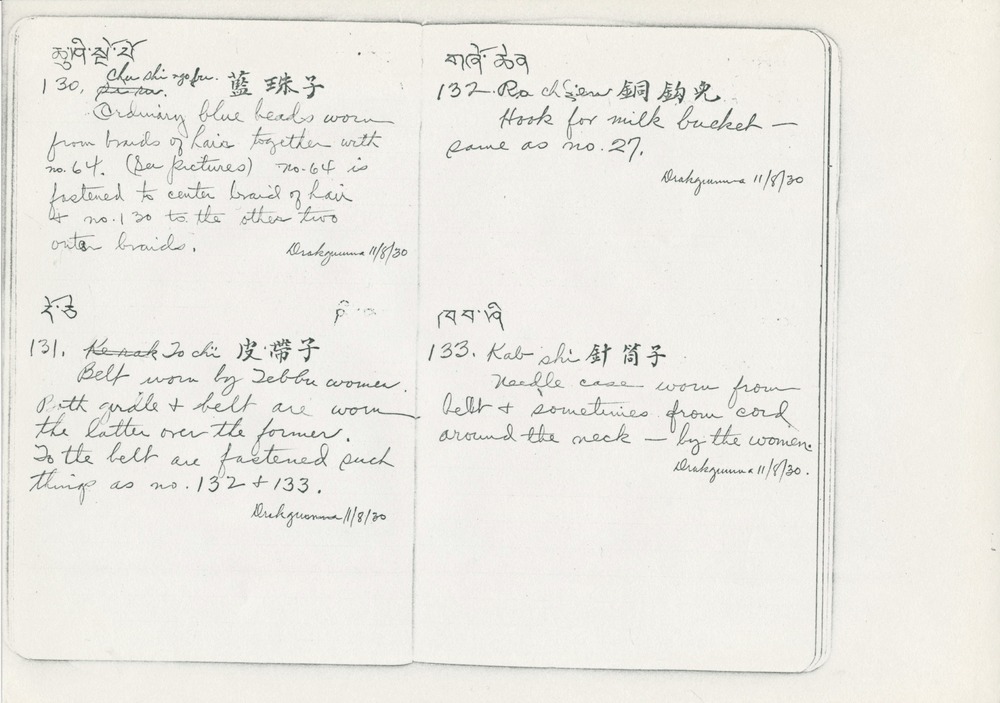 130. Chu shi ngo fu. 藍珠子
Ordinary blue beads worn
from braids of hair together with
no. 64. (See pictures) no. 64 is
fastened to center braid of hair
& no. 130 to the other two
outer braids.
Drakgumna 11/8/30
131. Ke rak To chi 皮帶子
Belt worn by Tebbu women.
Both girdle & belt are worn
the latter over the former.
To the belt are fastened such
things as no. 132 & 133.
Drakgumna 11/8/30
132. Ra 銅鈎
Hook for milk bucket —
same as no. 27.
Drakgumna 11/8/30
ཁབ་
133. Kab shi 針筒子
Needle case worn from
belt & sometimes from cord
around the neck — by the women.
Drakgumna 11/8/30.